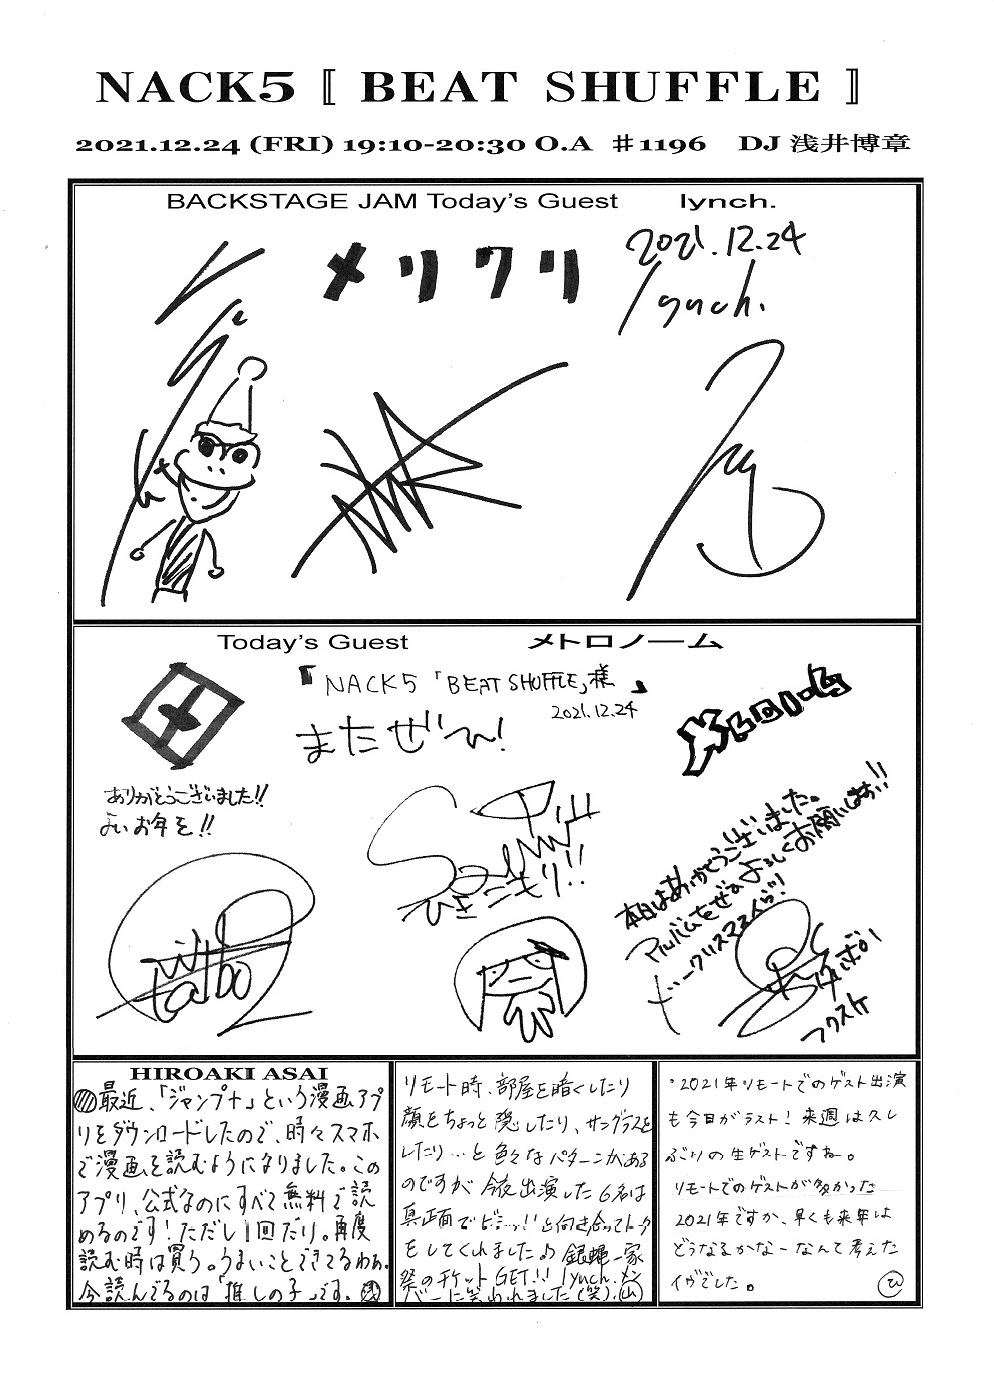 NACK5 〚 BEAT SHUFFLE 〛
2021.12.24 (FRI) 19:10-20:30 O.A ♯1196 DJ 浅井博章
BACKSTAGE JAM Today's Guest lynch.
メリクリ
2021.12.24
lynch.
Today's Guest メトロノーム
『NACK5「BEAT SHUFFLE」様』
2021.12.24
またぜひ!
メトロノーム
ありがとうございました!!
よいお年を!!
本日はありがとうございました。
アルバムもぜひよろしくお願いしまぁす!!
フクスケ
HIROAKI ASAI
最近、「ジャンプ+」という漫画アプ
リをダウンロードしたので、時々スマホ
で漫画を読むようになりました。この
アプリ、公式なのにすべて無料で読
めるのです!ただし1回だけ。再度
読む時は買う。うまいことできてるわぁ。
今読んでるのは「推しの子」です。
リモート時、部屋を暗くしたり
顔をちょっと隠したり、サングラスを
したり…と色々なパターンがある
のですが今夜出演した6名は
真正面でビシッ!!と向き合ってトーク
をしてくれました♪ 銀蠅一家
祭のチケットGET!! lynch.メン
バーに笑われました(笑)。山
・2021年リモートでのゲスト出演
も今日がラスト! 来週は久し
ぶりの生ゲストですね。
リモートでのゲストが多かった
2021年ですが、早くも来年は
どうなるかなーなんて考えた
イヴでした。 ひ